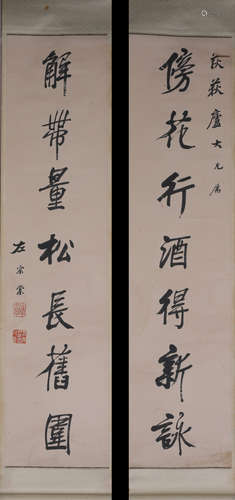 荻蔌廬大兄屬
傍花行酒得新詠
解帶量松長舊圍
左宗棠